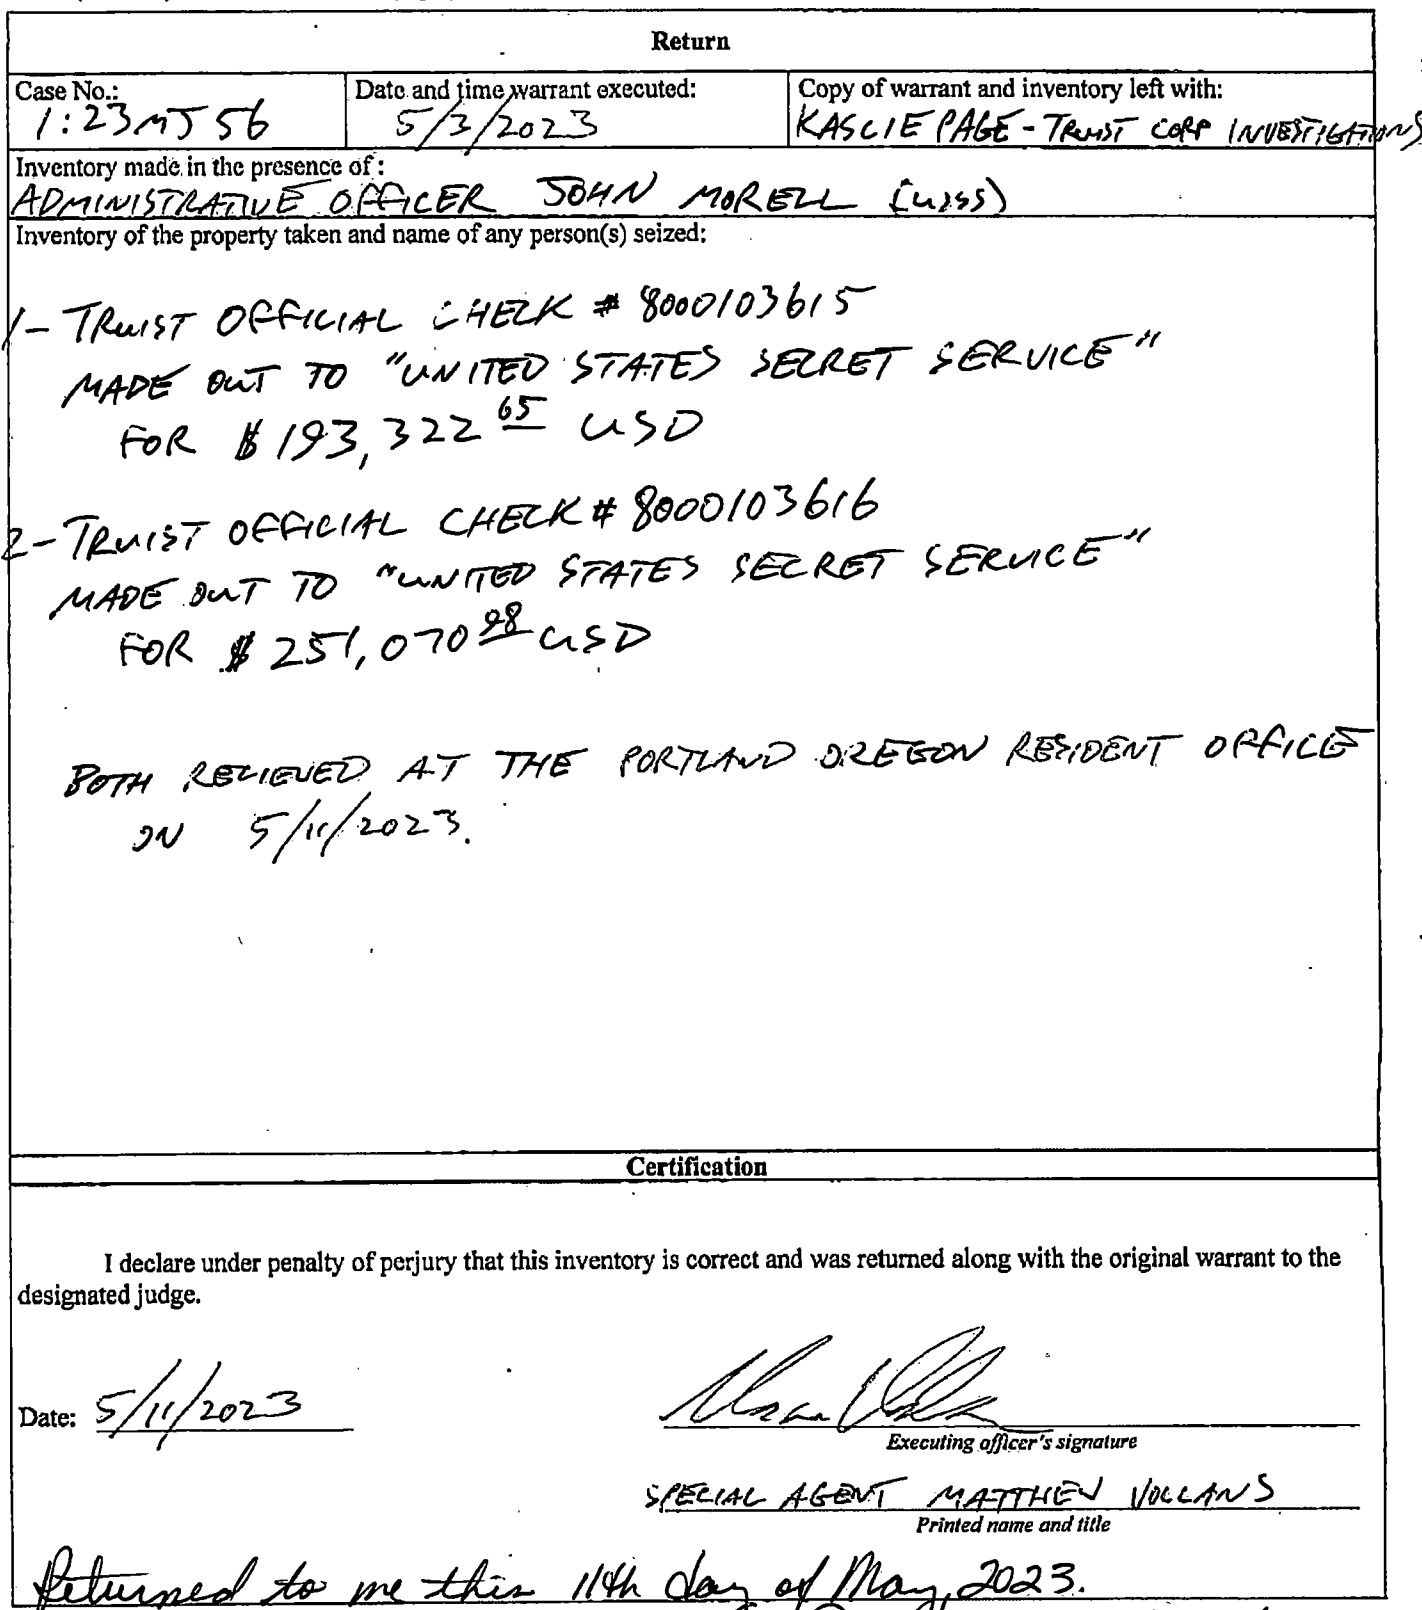 Return
Case No.:
1:23MJ56
Date and time warrant executed:
5/3/2023
Copy of warrant and inventory left with:
KASCIE PAGE - TRUIST CORP INVESTIGATIONS
Inventory made in the presence of :
ADMINISTRATIVE OFFICER JOHN MORELL (USSS)
Inventory of the property taken and name of any person(s) seized:
1- TRUIST OFFICIAL CHECK # 8000103615
MADE OUT TO "UNITED STATES SECRET SERVICE"
FOR $193,322 65 USD
2- TRUIST OFFICIAL CHECK # 8000103616
MADE OUT TO "UNITED STATES SECRET SERVICE"
FOR $251,070 98 USD
BOTH RECIEVED AT THE PORTLAND OREGON RESIDENT OFFICE
ON 5/11/2023.
Certification
I declare under penalty of perjury that this inventory is correct and was returned along with the original warrant to the
designated judge.
Date: 5/11/2023
Executing officer's signature
SPECIAL AGENT MATTHEW VOLLANS
Printed name and title
Returned to me this 11th day of May, 2023.